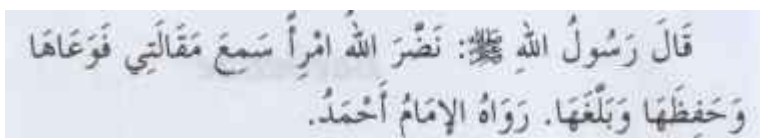 قَالَ رَسُولُ اللهِ ﷺ: نَضَّرَ اللهُ امْرِأً سَمِعَ مَقَالَتِي فَوَعَاهَا
وَحَفِظَهَا وَبَلَّغَهَا. رَوَاهُ الإِمَامُ أَحْمَدُ.